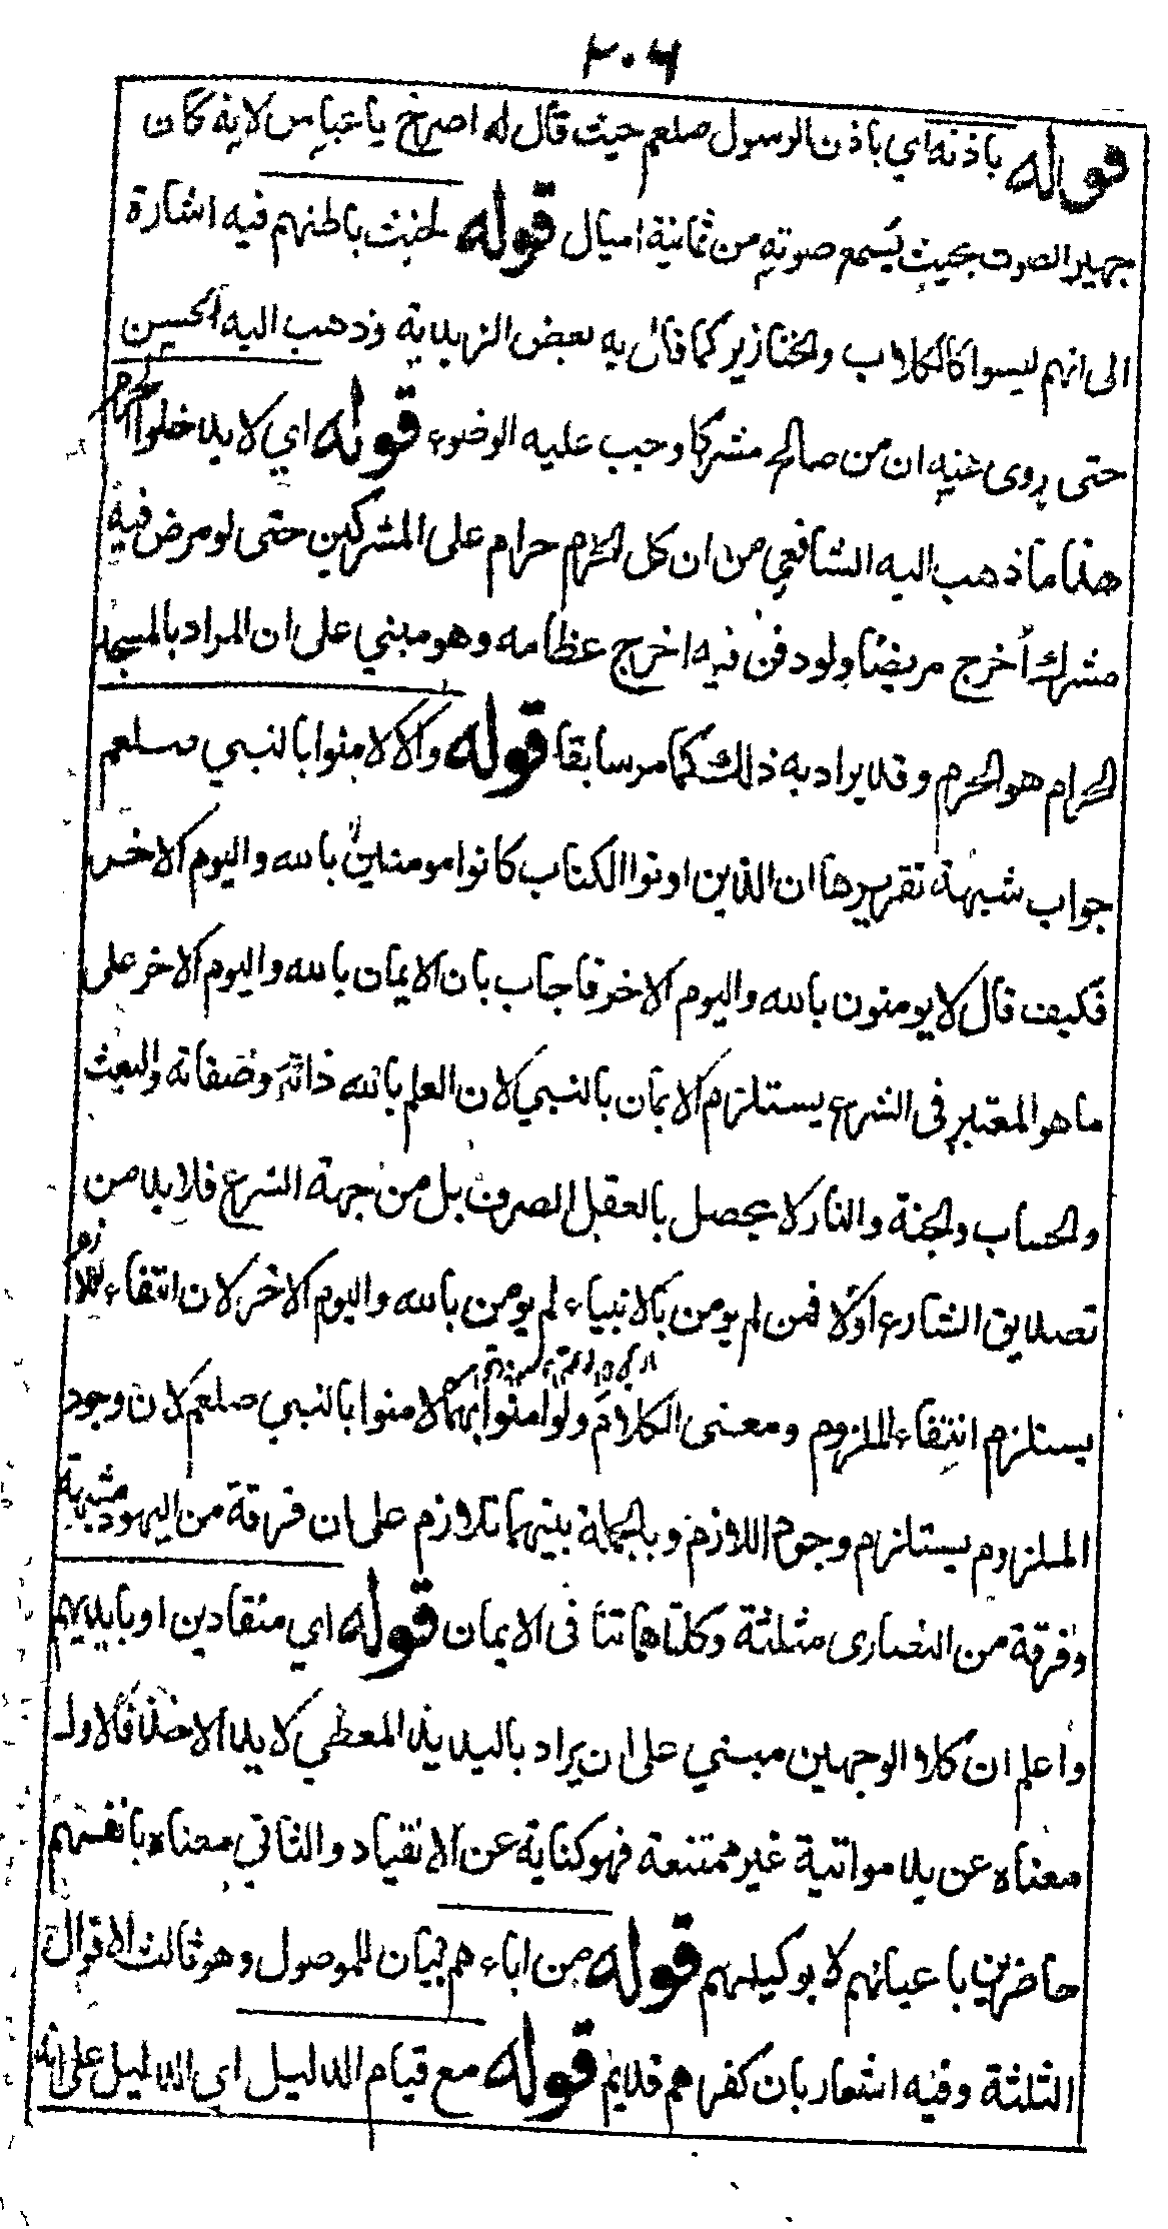 ٢٠٦
قوله باذنه اي باذن الرسول صلعم حيث قال له اصرخ يا عباس لانه كان
جهير الصوت بحيث يسمع صوته من ثمانية اميال قوله لخبث باطنهم فيه اشارة
الى انهم ليسوا كالكلاب والخنازير كما قال به بعض الزيدية وذهب اليه الحسن
حتى روى عنه ان من صالح مشركا وجب عليه الوضوء قوله اي لا يدخلوا الحرام
هذا ما ذهب اليه الشافعي من ان كل الحرم حرام على المشركين حتى لو مرض فيه
مشرك أخرج مريضا ولو دفن فيه اخرج عظامه وهو مبني على ان المراد بالمسجد
الحرام هو الحرم وقد يراد به ذلك كما مر سابقا قوله والا لامنوا بالنبي صلعم
جواب شبهة تقريرها ان الذين اوتوا الكتاب كانوا مومنين بالله واليوم الاخر
فكيف قال لا يومنون بالله واليوم الاخر فاجاب بان الايمان بالله واليوم الاخر على
ما هو المعتبر في الشرع يستلزم الايمان بالنبي لان العلم بالله ذاته وصفاته والبعث
والحساب والجنة والنار لا يحصل بالعقل الصرف بل من جهة الشرع فلا بد من
تصديق الشارع اولا فمن لم يومن بالانبياء لم يومن بالله واليوم الاخر لان انتفاء اللازم
يستلزم انتفاء الملزوم ومعنى الكلام ولو امنوا بهما لامنوا بالنبي صلعم لان وجود
الملزوم يستلزم وجود اللازم وبالجملة بينهما تلازم على ان فرقة من اليهود مشبهة
وفرقة من النصارى مثلثة وكلتاهما تنافى الايمان قوله اي منقادين او بايديهم
واعلم ان كلا الوجهين مبني على ان يراد باليد يد المعطي لا يد الاخذ فالاول
معناه عن يد مواتية غير ممتنعة فهو كناية عن الانقياد والثاني معناه بانفسهم
حاضرين باعيانهم لا بوكيلهم قوله من اباءهم بيان للموصول وهو ثالث الاقوال
الثلثة وفيه اشعار بان كفرهم قديم قوله مع قيام الدليل اي الدليل على انه